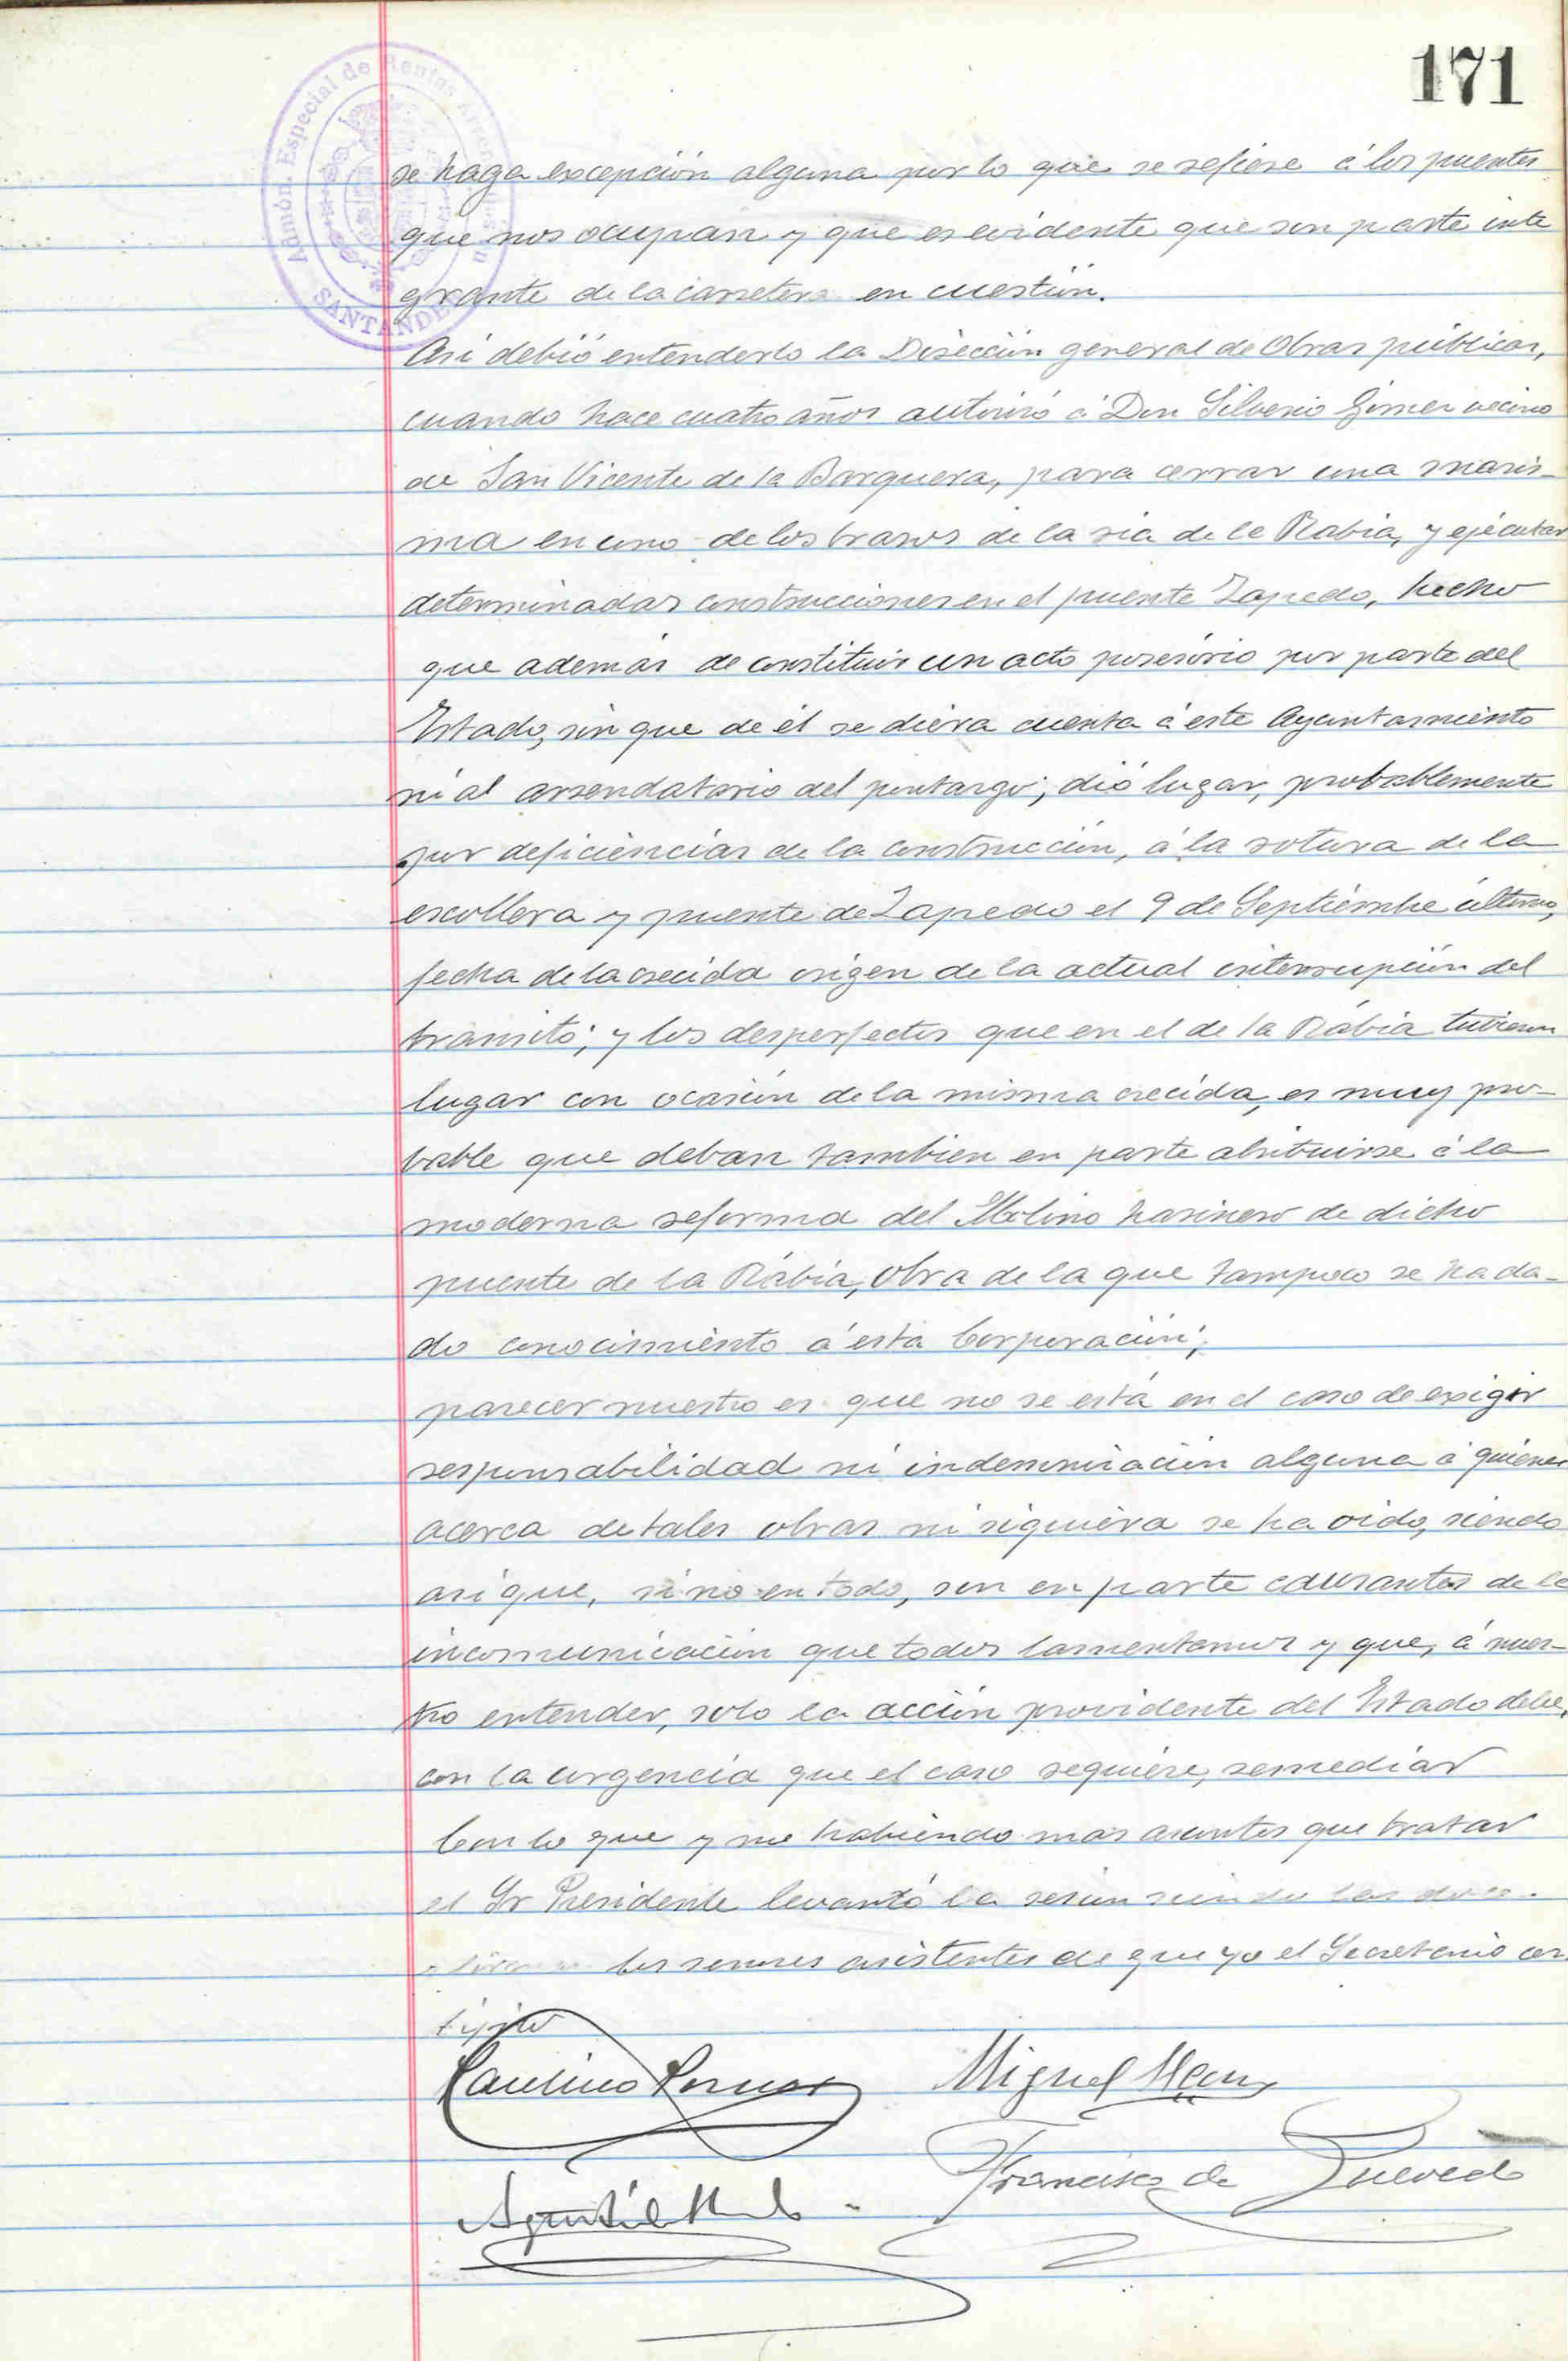 171
Admón. Especial de Rentas Arrendadas en
SANTANDER
se haga excepción alguna por lo que se refiere á los puentes
que nos ocupan y que es evidente que son parte inte
grante de la carretera en cuestión.
Asi debió entenderlo la Dirección general de Obras públicas,
cuando hace cuatro años autorizó á Don Silverio Gómez vecino
de San Vicente de la Barquera, para cerrar una maris-
ma en uno de los brazos de la ria de la Rabia, y ejecutar
determinadas construcciones en el puente Zapedo, hecho
que además de constituir un acto posesorio por parte del
Estado, sin que de él se diera cuenta á este Ayuntamiento
ni al arrendatario del pontazgo; dió lugar, probablemente
por deficiencias de la construcción, á la rotura de la
escollera y puente de Zapedo el 9 de Septiembre último,
fecha de la crecida origen de la actual interrupción del
transito; y los desperfectos que en el de la Rábia tubieron
lugar con ocasión de la misma crecida, es muy pro-
bable que deban tambien en parte atribuirse á la
moderna reforma del Molino harinero de dicho
puente de la Rábia, obra de la que tampoco se ha da-
do conocimiento á esta Corporación;
parecer nuestro es que no se está en el caso de exigir
responsabilidad ni indemnización alguna á quienes
acerca de tales obras ni siquiera se ha oido, siendo
asi que, si no en todo, son en parte causantes de la
incomunicación que todos lamentamos y que, á nues-
tro entender, solo la acción providente del Estado debe,
con la urgencia que el caso requiere, remediar
Con lo que y no habiendo mas asuntos que tratar
el Sr Presidente levantó la sesión siendo las doce.
los señores asistentes de que yo el Secretario cer
tifico
Paulino Miguel
Francisco de Quevedo